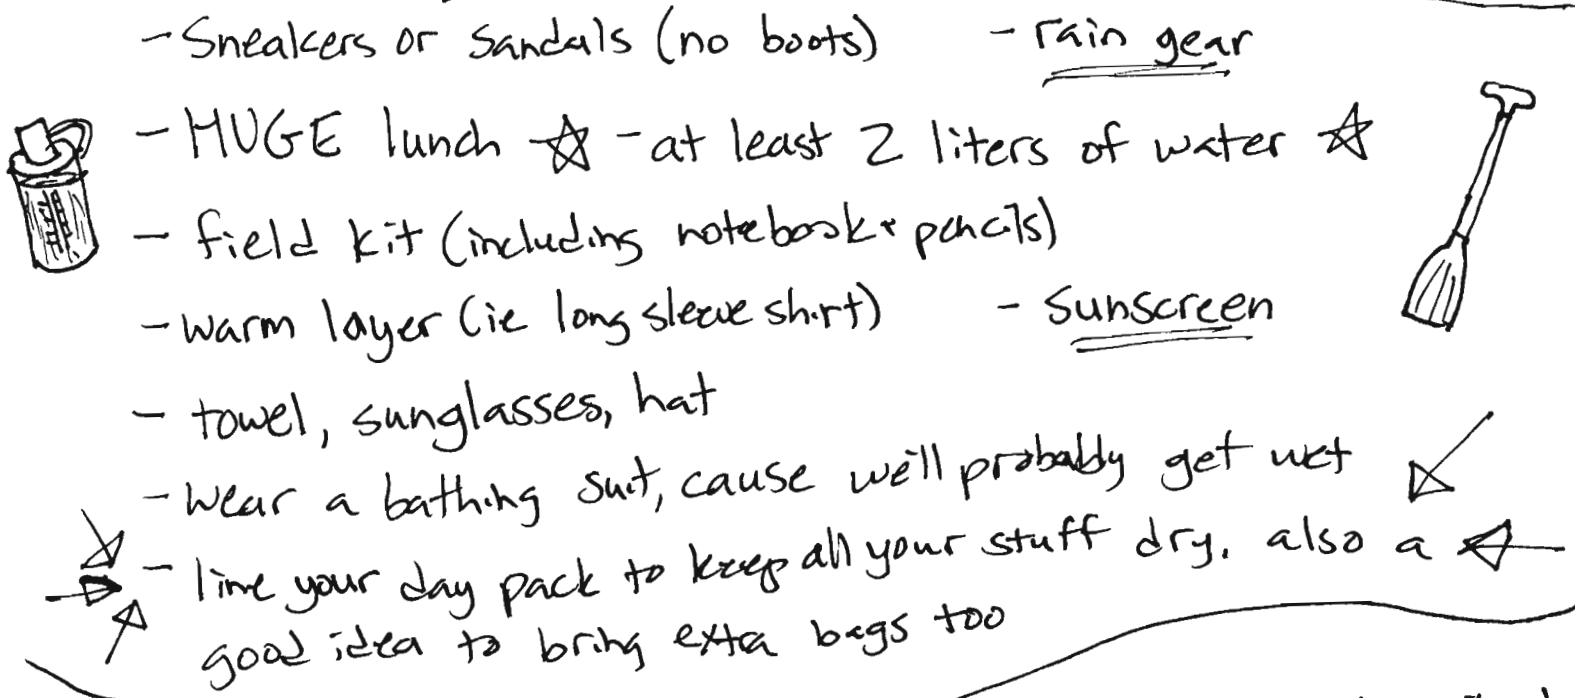 - Sneakers or sandals (no boots) - rain gear
- HUGE lunch ☆ - at least 2 liters of water ☆
- field kit (including notebook + pencils)
- warm layer (ie long sleeve shirt) - Sunscreen
- towel, sunglasses, hat
- wear a bathing suit, cause we'll probably get wet
- line your day pack to keep all your stuff dry. also a
good idea to bring extra bags too